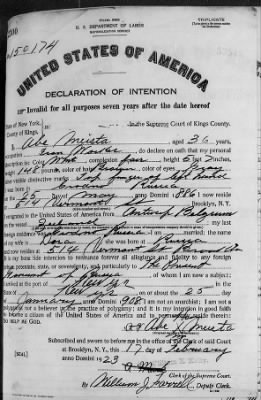 TRIPLICATE
U. S. DEPARTMENT OF LABOR
NATURALIZATION SERVICE
150174
UNITED STATES OF AMERICA
DECLARATION OF INTENTION
Invalid for all purposes seven years after the date hereof
State of New York,
County of Kings,
In the Supreme Court of Kings County.
I, Abe Meista aged 36 years,
occupation Iron Worker, do declare on oath that my personal
description is: Color White, complexion fair, height 5 feet 7 inches,
weight 148 pounds, color of hair, color of eyes
other visible distinctive marks
Grodno Russia
on the 25 day of May, anno Domini 1886; I now reside
at 514 Vermont, Brooklyn, N.Y.
I emigrated to the United States of America from Antwerp Belgium
on the vessel; my last
foreign residence was Russia. I am married; the name
of my wife is Dora she was born at Russia
and now resides at 514 Vermont St
It is my bona fide intention to renounce forever all allegiance and fidelity to any foreign
prince, potentate, state, or sovereignty, and particularly to The Present
Government of Russia, of whom I am now a subject;
I arrived at the port of New York, in the
State of New York, on or about the 25 day
of January, anno Domini 1908; I am not an anarchist; I am not a
polygamist nor a believer in the practice of polygamy; and it is my intention in good faith
to become a citizen of the United States of America and to permanently reside therein:
SO HELP ME GOD.
Abe Meista
Subscribed and sworn to before me in the office of the Clerk of said Court
[SEAL]
at Brooklyn, N. Y., this 17 day of February
anno Domini 1923
Clerk of the Supreme Court.
By William J. Deputy Clerk.